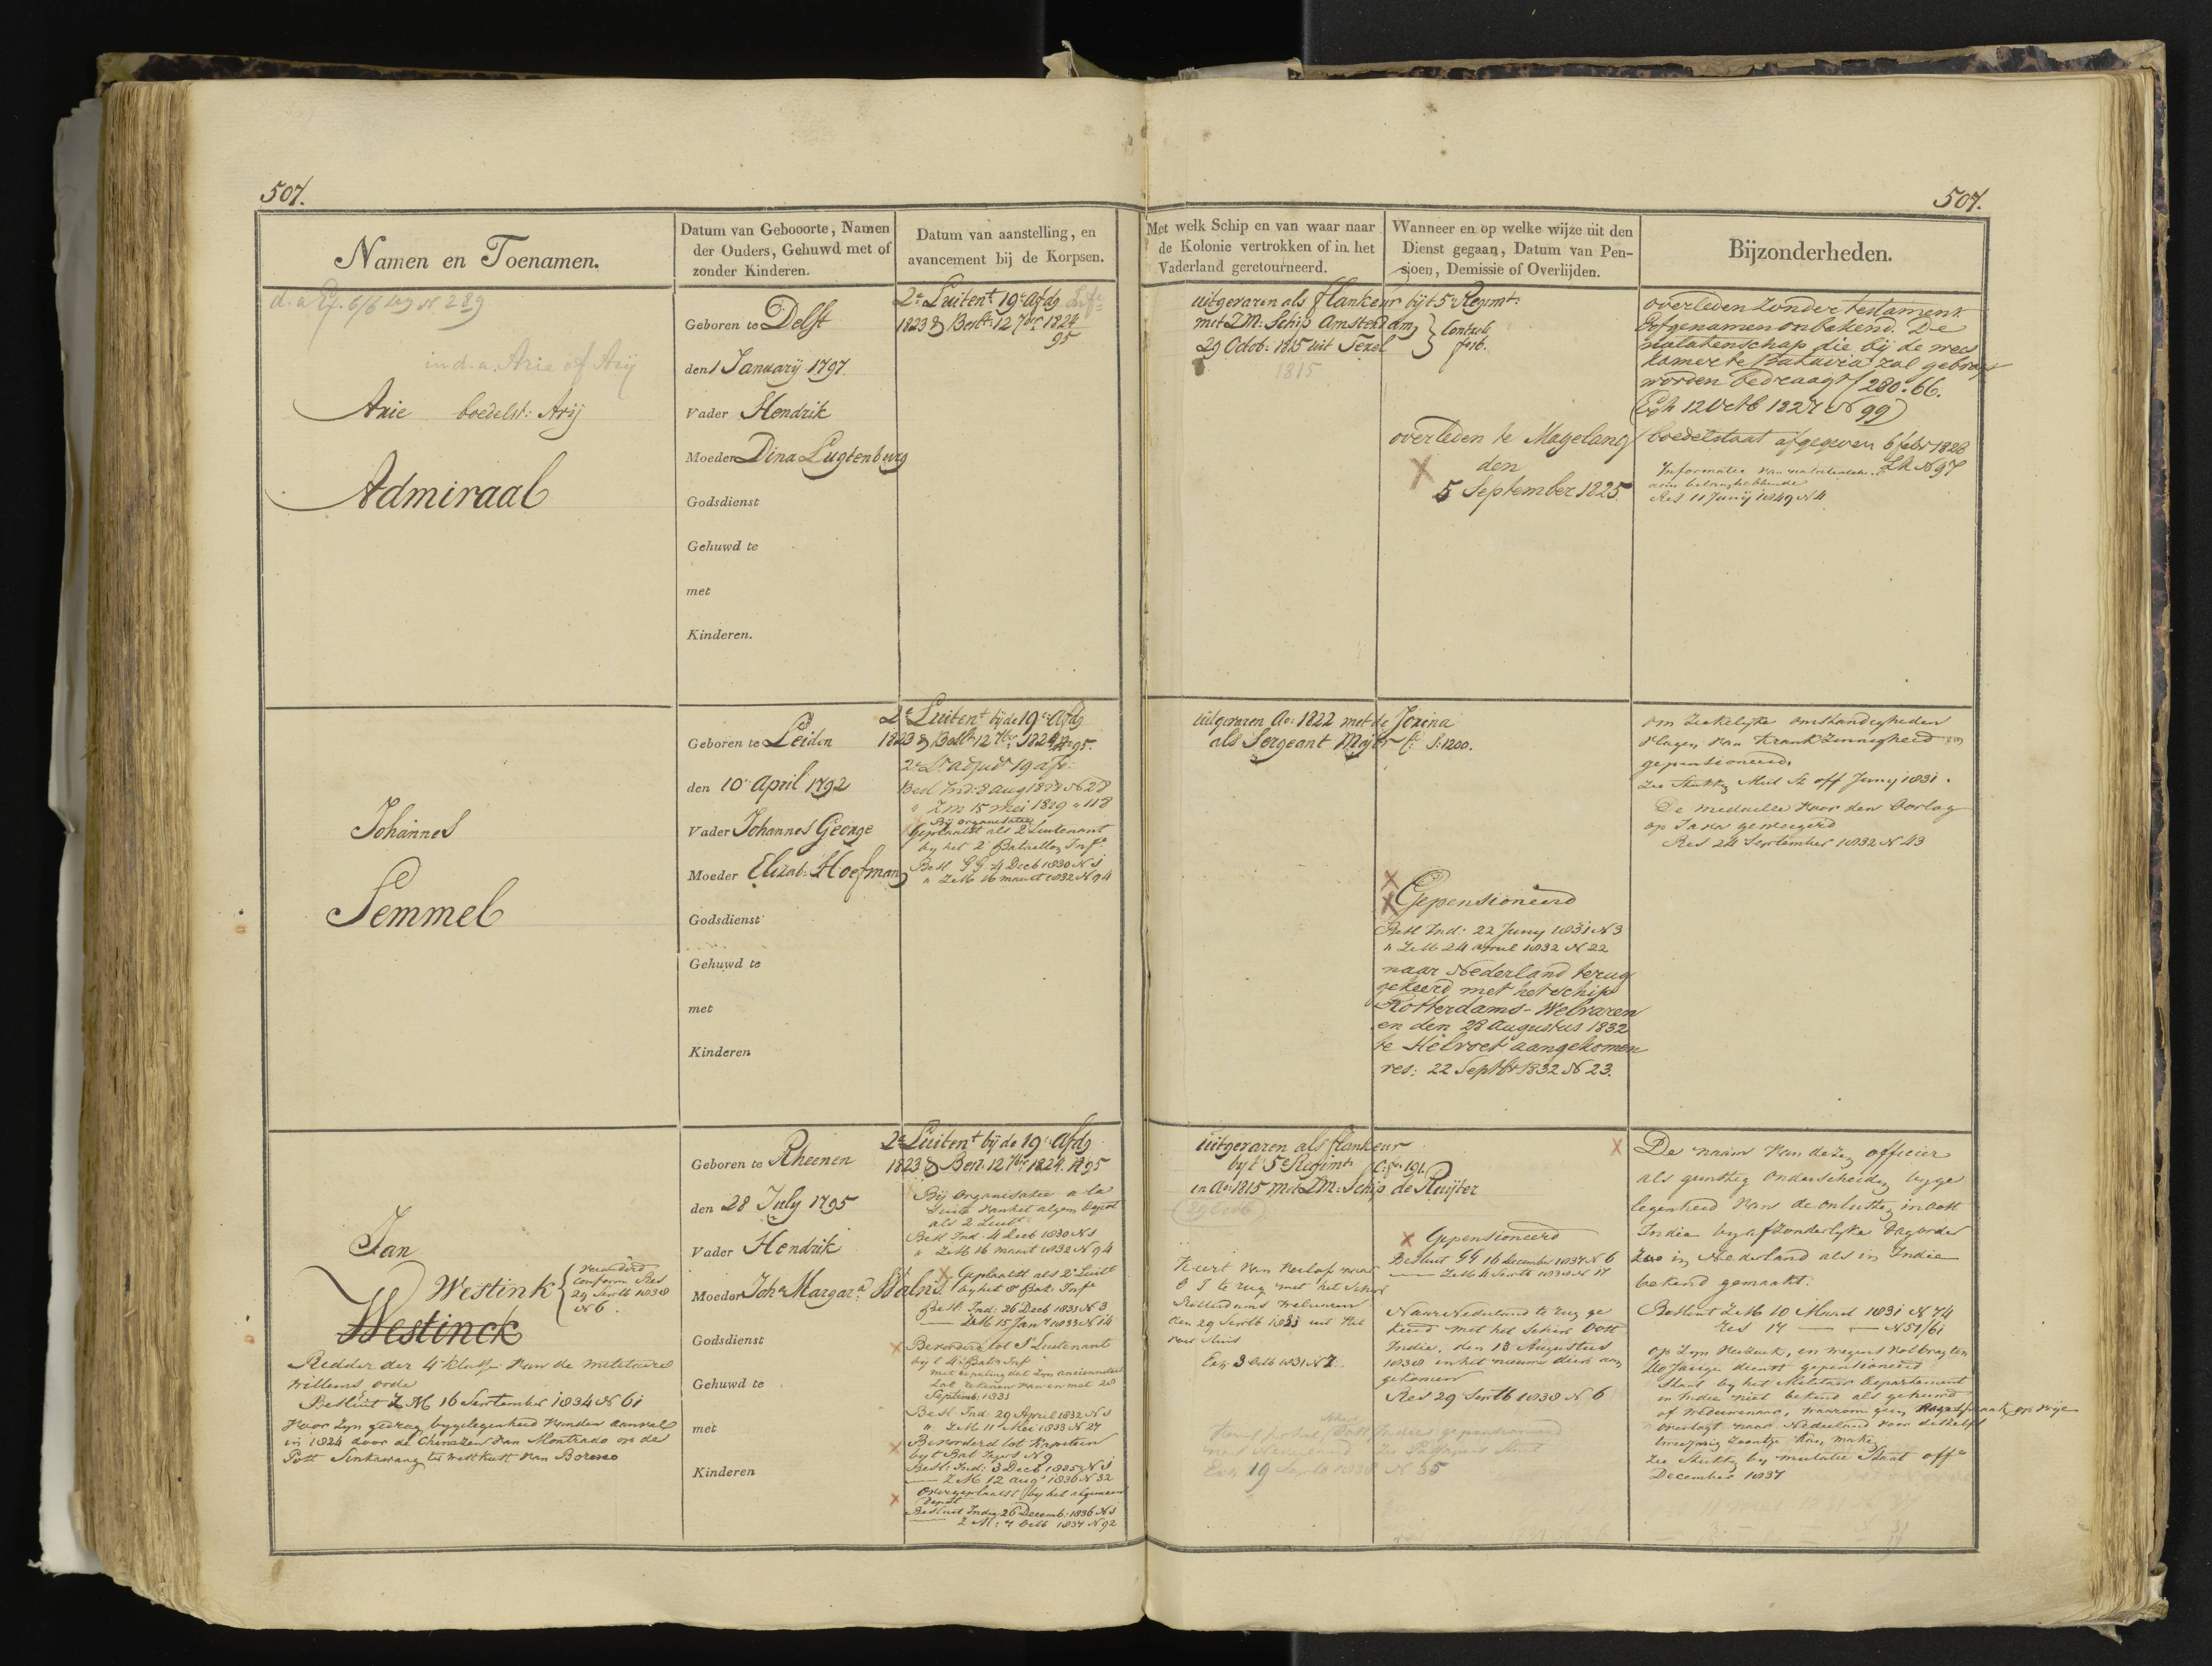 507.
507.
Namen en Toenamen.
Datum van Gebooorte, Namen
der Ouders, Gehuwd met of
zonder Kinderen.
Datum van aanstelling, en
avancement bij de Korpsen.
Met welk Schip en van waar naar
de Kolonie vertrokken of in het
Vaderland geretourneerd.
Wanneer en op welke wijze uit den
Dienst gegaan, Datum van Pen-
sjoen, Demissie of Overlijden.
Bijzonderheden.
in d. a. Arie of Arij
Arie boedelst: Arij
Admiraal
Geboren te Delft
den 1 January 1797.
Vader Hendrik
Moeder Dina Lugtenburg
Godsdienst
Gehuwd te
met
Kinderen.
2e Luitent 19e Afdg
1823 & Beslt: 12 7ber 1824
95
uitgevaren als flankeur bijt 5e Regimt:
met ZM: Schip Amsterdam
29 Octob: 1815 uit Texel
1815
overleden te Magelang
den
5 September 1825.
overleden zonder testament
Erfgenamen onbekend. De
nalatenschap die bij de wees
kamer te Batavia zal gebragt
worden bedraagt f 280.66.
12 Octb 1827 N 99)
boedelstaat afgegeven 6 febr 1828
LA N 97
Informatie van nalatensch.
aan belanghebbende
Res. 11 Junij 1849 N 4
Johannes
Semmel
Geboren te Leiden
den 10 April 1792
Vader Johannes George
Moeder Elizab: Hoefman
Godsdienst
Gehuwd te
met
Kinderen
2e Luitent bij de 19e Afdg
1823 & Beslt 12 7ber 1824 N 95.
2e Lt Adjudt 19 afd:
Besl Ind: 8 Aug 1828 N 28
" ZM 15 Mei 1829 " 118
Bij organisatie
Geplaatst als 2 Luitenant
by het 2e Bataillon Inf.
Besl GG 4 Decb 1830 N 1
" ZM 16 maart 1832 N 94
uitgevaren Ao: 1822 met de Jorina
als Sergeant Majoor f: S: 1200.
Gepensioneerd
Besl Ind: 22 Juny 1831 N 3
" ZM 24 april 1832 N 22
naar Nederland terug
gekeerd met het schip
Rotterdams-Welvaren
en den 28 augustus 1832
te Helvoet aangekomen
res: 22 Septbr 1832 N 23.
Om ziekelyke omstandigheden
vlagen van krankzinnigheid
gepensioneerd.
Zie Stukken Mil St off Juny 1831.
De medaille voor den Oorlog
op Java geweigerd
Res 24 September 1832 N 43
Jan
Westink
veranderd
conform Res
29 Septb 1838
N 6.
Westinck
Ridder der 4e klasse van de militaire
Willems orde
Besluit Z M 16 September 1834 N 61
voor zyn gedrag bygelegenheid van den aanval
in 1824 door de Chinezen van Montrado op de
Post Sinkawang ter westkust van Borneo
Geboren te Rheenen
den 28 July 1795
Vader Hendrik
Moeder Joha Margara
Godsdienst
Gehuwd te
met
Kinderen
2e Luitent bij de 19e Afdg
1823 & Besl: 12 7ber 1824. N 95
Bij Organisatie a la
Suite van het algem Depot
als 2 Luitt
Besl Ind 4 Decb 1830 N 1
" ZM 16 maart 1832 N 94
Geplaatst als 2e Luitt
by het 8e Bat: Inf
Besl: Ind: 26 Decb 1831 N 3
ZM 15 Jany 1833 N 14
Bevorderd tot 1e Luitenant
by t 4e Batn Inf
met bepaling dat zyn ancienneteit
zal rekenen van en met 28
September 1831
Besl Ind: 29 April 1832 N 1
" ZM 11 Mei 1833 N 27
Bevorderd tot Kapitein
by t Bat Jagers N 9
Besl: Ind: 3 Decb 1835 N 1
ZM 12 aug 1836 N 32
Overgeplaatst by het algemeen
Depot
Besluit Indie 26 Decemb: 1836 N 1
Z M: 7 Octb 1837 N 92
uitgevaren als flankeur
by t 5e Regimt fo: 191.
in Ao: 1815 met ZM: Schip de Ruijter
Keert van verlof naar
O I te rug met het Schip
Rotterdams welvaren
den 29 Septb 1831 uit Hel
voet sluis
Exh 3 Octb 1831 N 7.
Gepensioneerd
Besluit GG 16 december 1837 N 6
ZM 4 Septb 1838 N 17
Naar Nederland te rug ge
keerd met het Schip Oost
Indie, den 13 Augustus
1838 in het nieuwe diep aan
gekomen
Res 29 Septb 1838 N 6
Exh 19 Septb 1838 N 35
De naam van dezen officier
als gunstig onderscheiden byge
legenheid van de onlusten in Oost
Indie by afzonderlyke Dagorder
zoo in Nederland als in Indie
bekend gemaakt.
Besluit ZM 10 Maart 1831 N 74
Res 17 — — N 51/61
Op zyn verzoek, en wegens volbragten
20 Jarige dienst gepensioneerd
Staat by het Militair Departement
in Indie niet bekend als gehuwd
of weduwenaar, waarom geen aanspraak op vrye
overtogt naar Nederland voor deszelfs
tweejarig zoontje kan maken
Zie Stukken by militaire Staat offn
December 1837